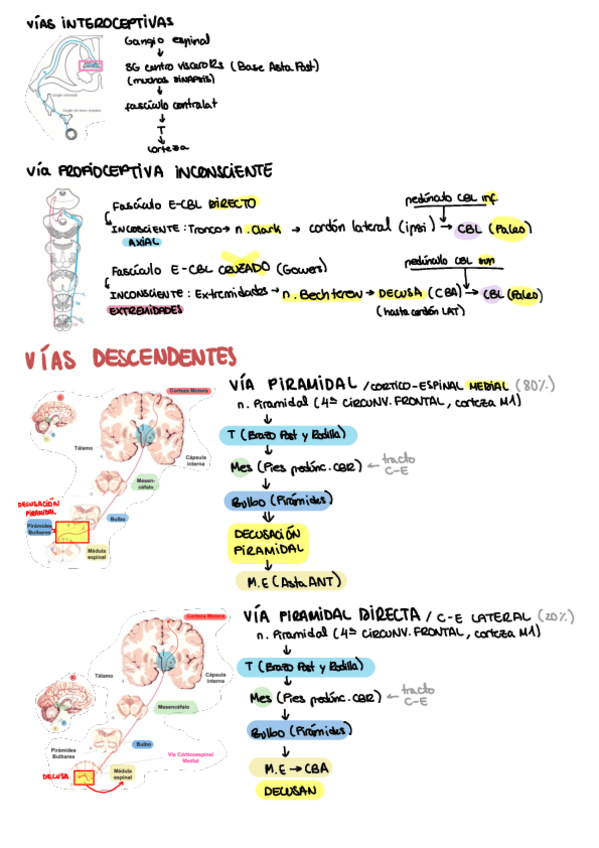 VÍAS INTEROCEPTIVAS
Ganglio espinal
SG centro VISCERORS (Base Asta Post)
(muchas SINAPSIS)
fascículo contralat
T
corteza
Vía PROPIOCEPTIVA INCONSCIENTE
Fascículo E-CBL DIRECTO
INCOSCIENTE: Tronco → n. Clark → cordón lateral (ipsi) → CBL (Paleo)
AXIAL
pedúnculo CBL inf
Fascículo E-CBL CRUZADO (Gowers)
INCONSCIENTE: Extremidades → n. Bechterew → DECUSA (CBA) → CBL (Paleo)
EXTREMIDADES
(hasta cordón LAT)
pedúnculo CBL sup
VÍAS DESCENDENTES
VÍA PIRAMIDAL / CORTICO-ESPINAL MEDIAL (80%)
n. Piramidal (4ª CIRCUNV. FRONTAL, corteza M1)
T (Brazo Post y Rodilla)
Mes (Pies pedúnc. CBR) ← tracto C-E
Bulbo (Pirámides)
DECUSACIÓN
PIRAMIDAL
M.E (Asta ANT)
Corteza Motora
Tálamo
Cápsula
interna
Mesen-
céfalo
DECUSACIÓN
PIRAMIDAL
Bulbo
Pirámides
Bulbares
Médula
espinal
VÍA PIRAMIDAL DIRECTA / C-E LATERAL (20%)
n. Piramidal (4ª CIRCUNV. FRONTAL, corteza M1)
T (Brazo Post y Rodilla)
Mes (Pies pedúnc. CBR) ← tracto C-E
Bulbo (Pirámides)
M.E → CBA
DECUSAN
Corteza Motora
Tálamo
Cápsula
interna
Mesencéfalo
Bulbo
Pirámides
Bulbares
Vía Córticoespinal
Medial
DECUSA
Médula
espinal